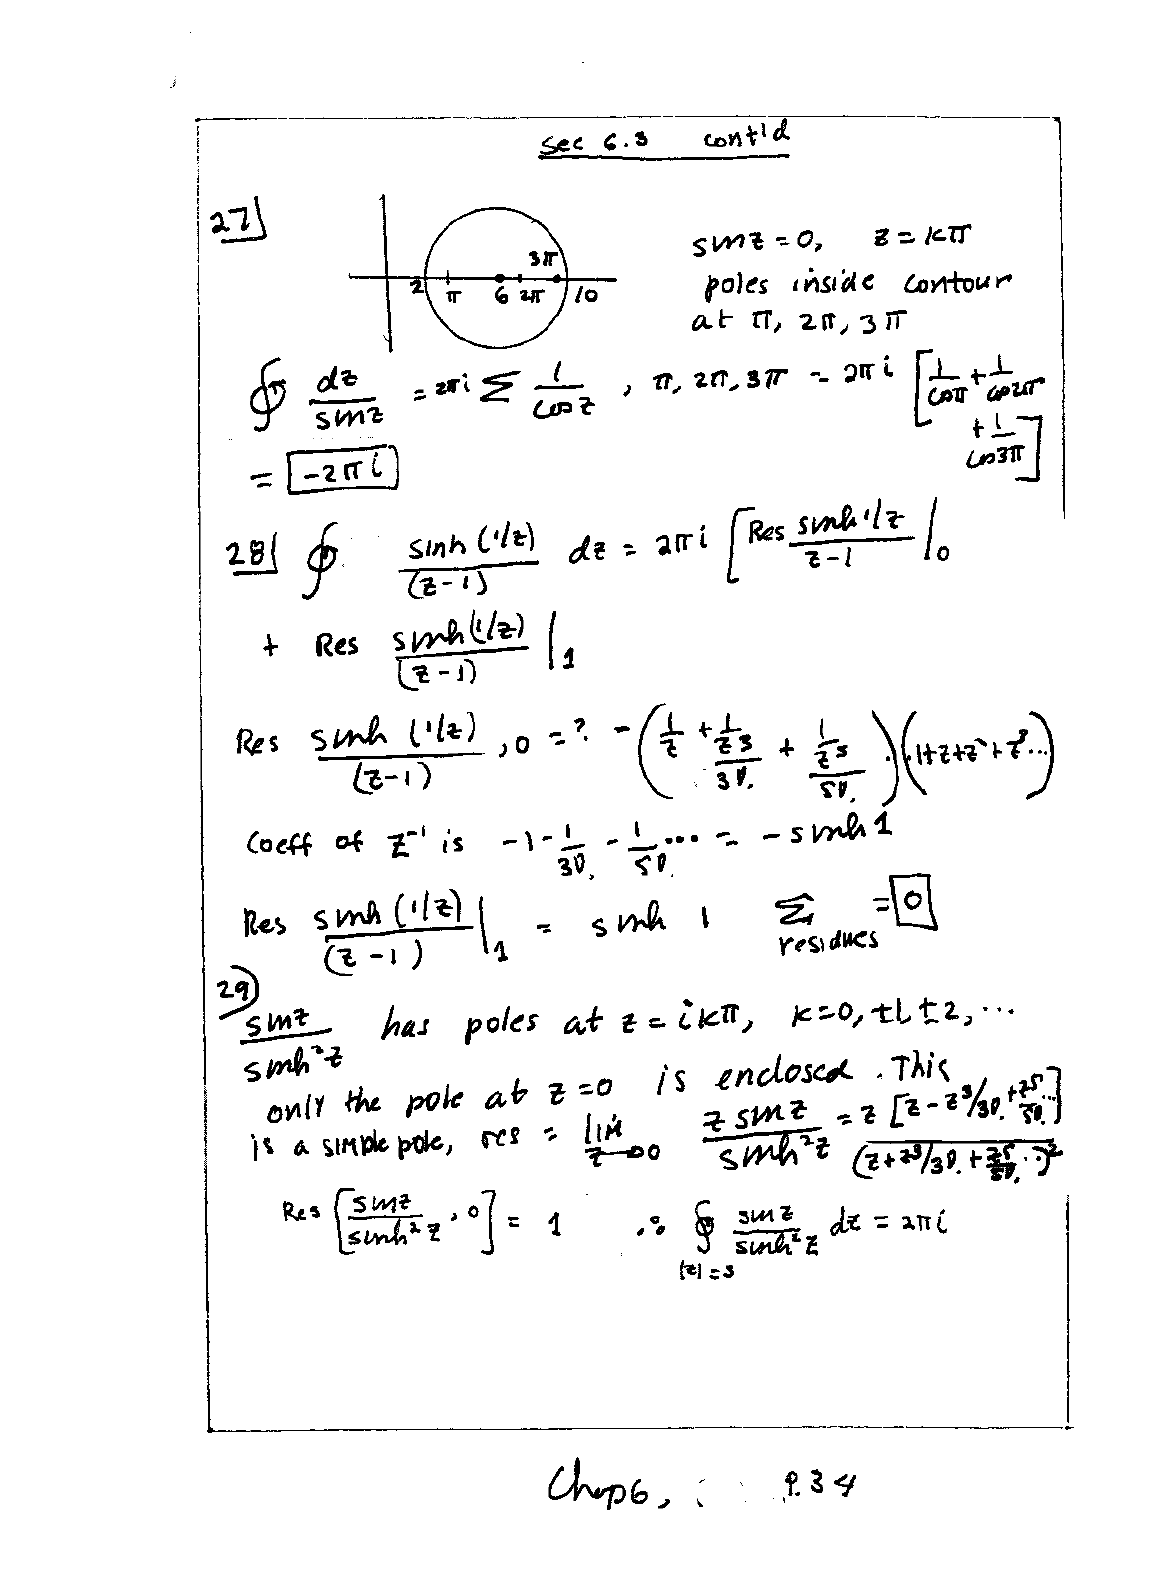 Sec 6.3 cont'd
27
3π
2 π 6 2π 10
sin z = 0, z = kπ
poles inside contour
at π, 2π, 3π
∮ dz/sin z = 2πi Σ 1/cos z, π, 2π, 3π = 2πi [1/cos π + 1/cos 2π
+ 1/cos 3π]
= -2πi
28 ∮ sinh(1/z)/(z-1) dz = 2πi [Res sinh 1/z/z-1 |0
+ Res sinh(1/z)/(z-1) |1
Res sinh(1/z)/(z-1), 0 = ? -(1/z + 1/z^3/3! + 1/z^5/5! ...)(1+z+z^2+z^3...)
Coeff of z^-1 is -1 - 1/3! - 1/5! ... = -sinh 1
Res sinh(1/z)/(z-1) |1 = sinh 1 Σ residues = 0
29
sin z/sinh^2 z has poles at z = ikπ, k=0, ±1, ±2, ...
only the pole at z=0 is enclosed. This
is a simple pole, res = lim z→0 z sin z/sinh^2 z = z [z - z^3/3! + z^5/5! ...]/(z + z^3/3! + z^5/5! ...)^2
Res [sin z/sinh^2 z, 0] = 1 ∴ ∮ sin z/sinh^2 z dz = 2πi
|z|=3
Chap 6, p. 34